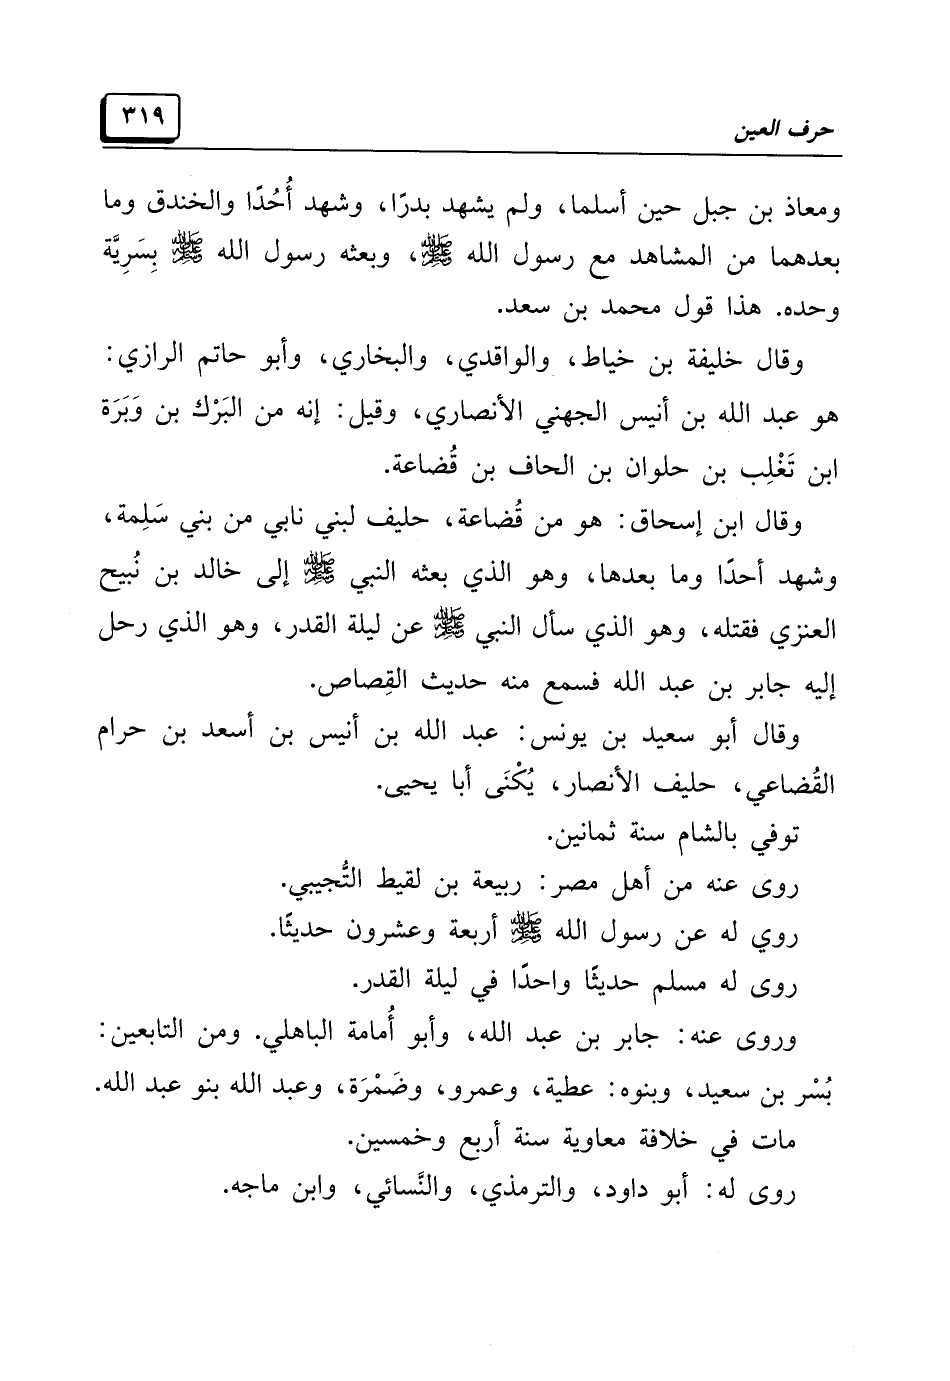 حرف العين
٣١٩
ومعاذ بن جبل حين أسلما، ولم يشهد بدرًا، وشهد أُحُدًا والخندق وما
بعدهما من المشاهد مع رسول الله ﷺ، وبعثه رسول الله ﷺ بِسَرِيَّة
وحده. هذا قول محمد بن سعد.
وقال خليفة بن خياط، والواقدي، والبخاري، وأبو حاتم الرازي:
هو عبد الله بن أنيس الجهني الأنصاري، وقيل: إنه من البَرْك بن وَبَرَة
ابن تَغْلِب بن حلوان بن الحاف بن قُضاعة.
وقال ابن إسحاق: هو من قُضاعة، حليف لبني نابي من بني سَلِمة،
وشهد أحدًا وما بعدها، وهو الذي بعثه النبي ﷺ إلى خالد بن نُبيح
العنزي فقتله، وهو الذي سأل النبي ﷺ عن ليلة القدر، وهو الذي رحل
إليه جابر بن عبد الله فسمع منه حديث القِصاص.
وقال أبو سعيد بن يونس: عبد الله بن أنيس بن أسعد بن حرام
القُضاعي، حليف الأنصار، يُكْنَى أبا يحيى.
توفي بالشام سنة ثمانين.
روى عنه من أهل مصر: ربيعة بن لقيط التُّجيبي.
روي له عن رسول الله ﷺ أربعة وعشرون حديثًا.
روى له مسلم حديثًا واحدًا في ليلة القدر.
وروى عنه: جابر بن عبد الله، وأبو أُمامة الباهلي. ومن التابعين:
بُسْر بن سعيد، وبنوه: عطية، وعمرو، وضَمْرَة، وعبد الله بنو عبد الله.
مات في خلافة معاوية سنة أربع وخمسين.
روى له: أبو داود، والترمذي، والنَّسائي، وابن ماجه.